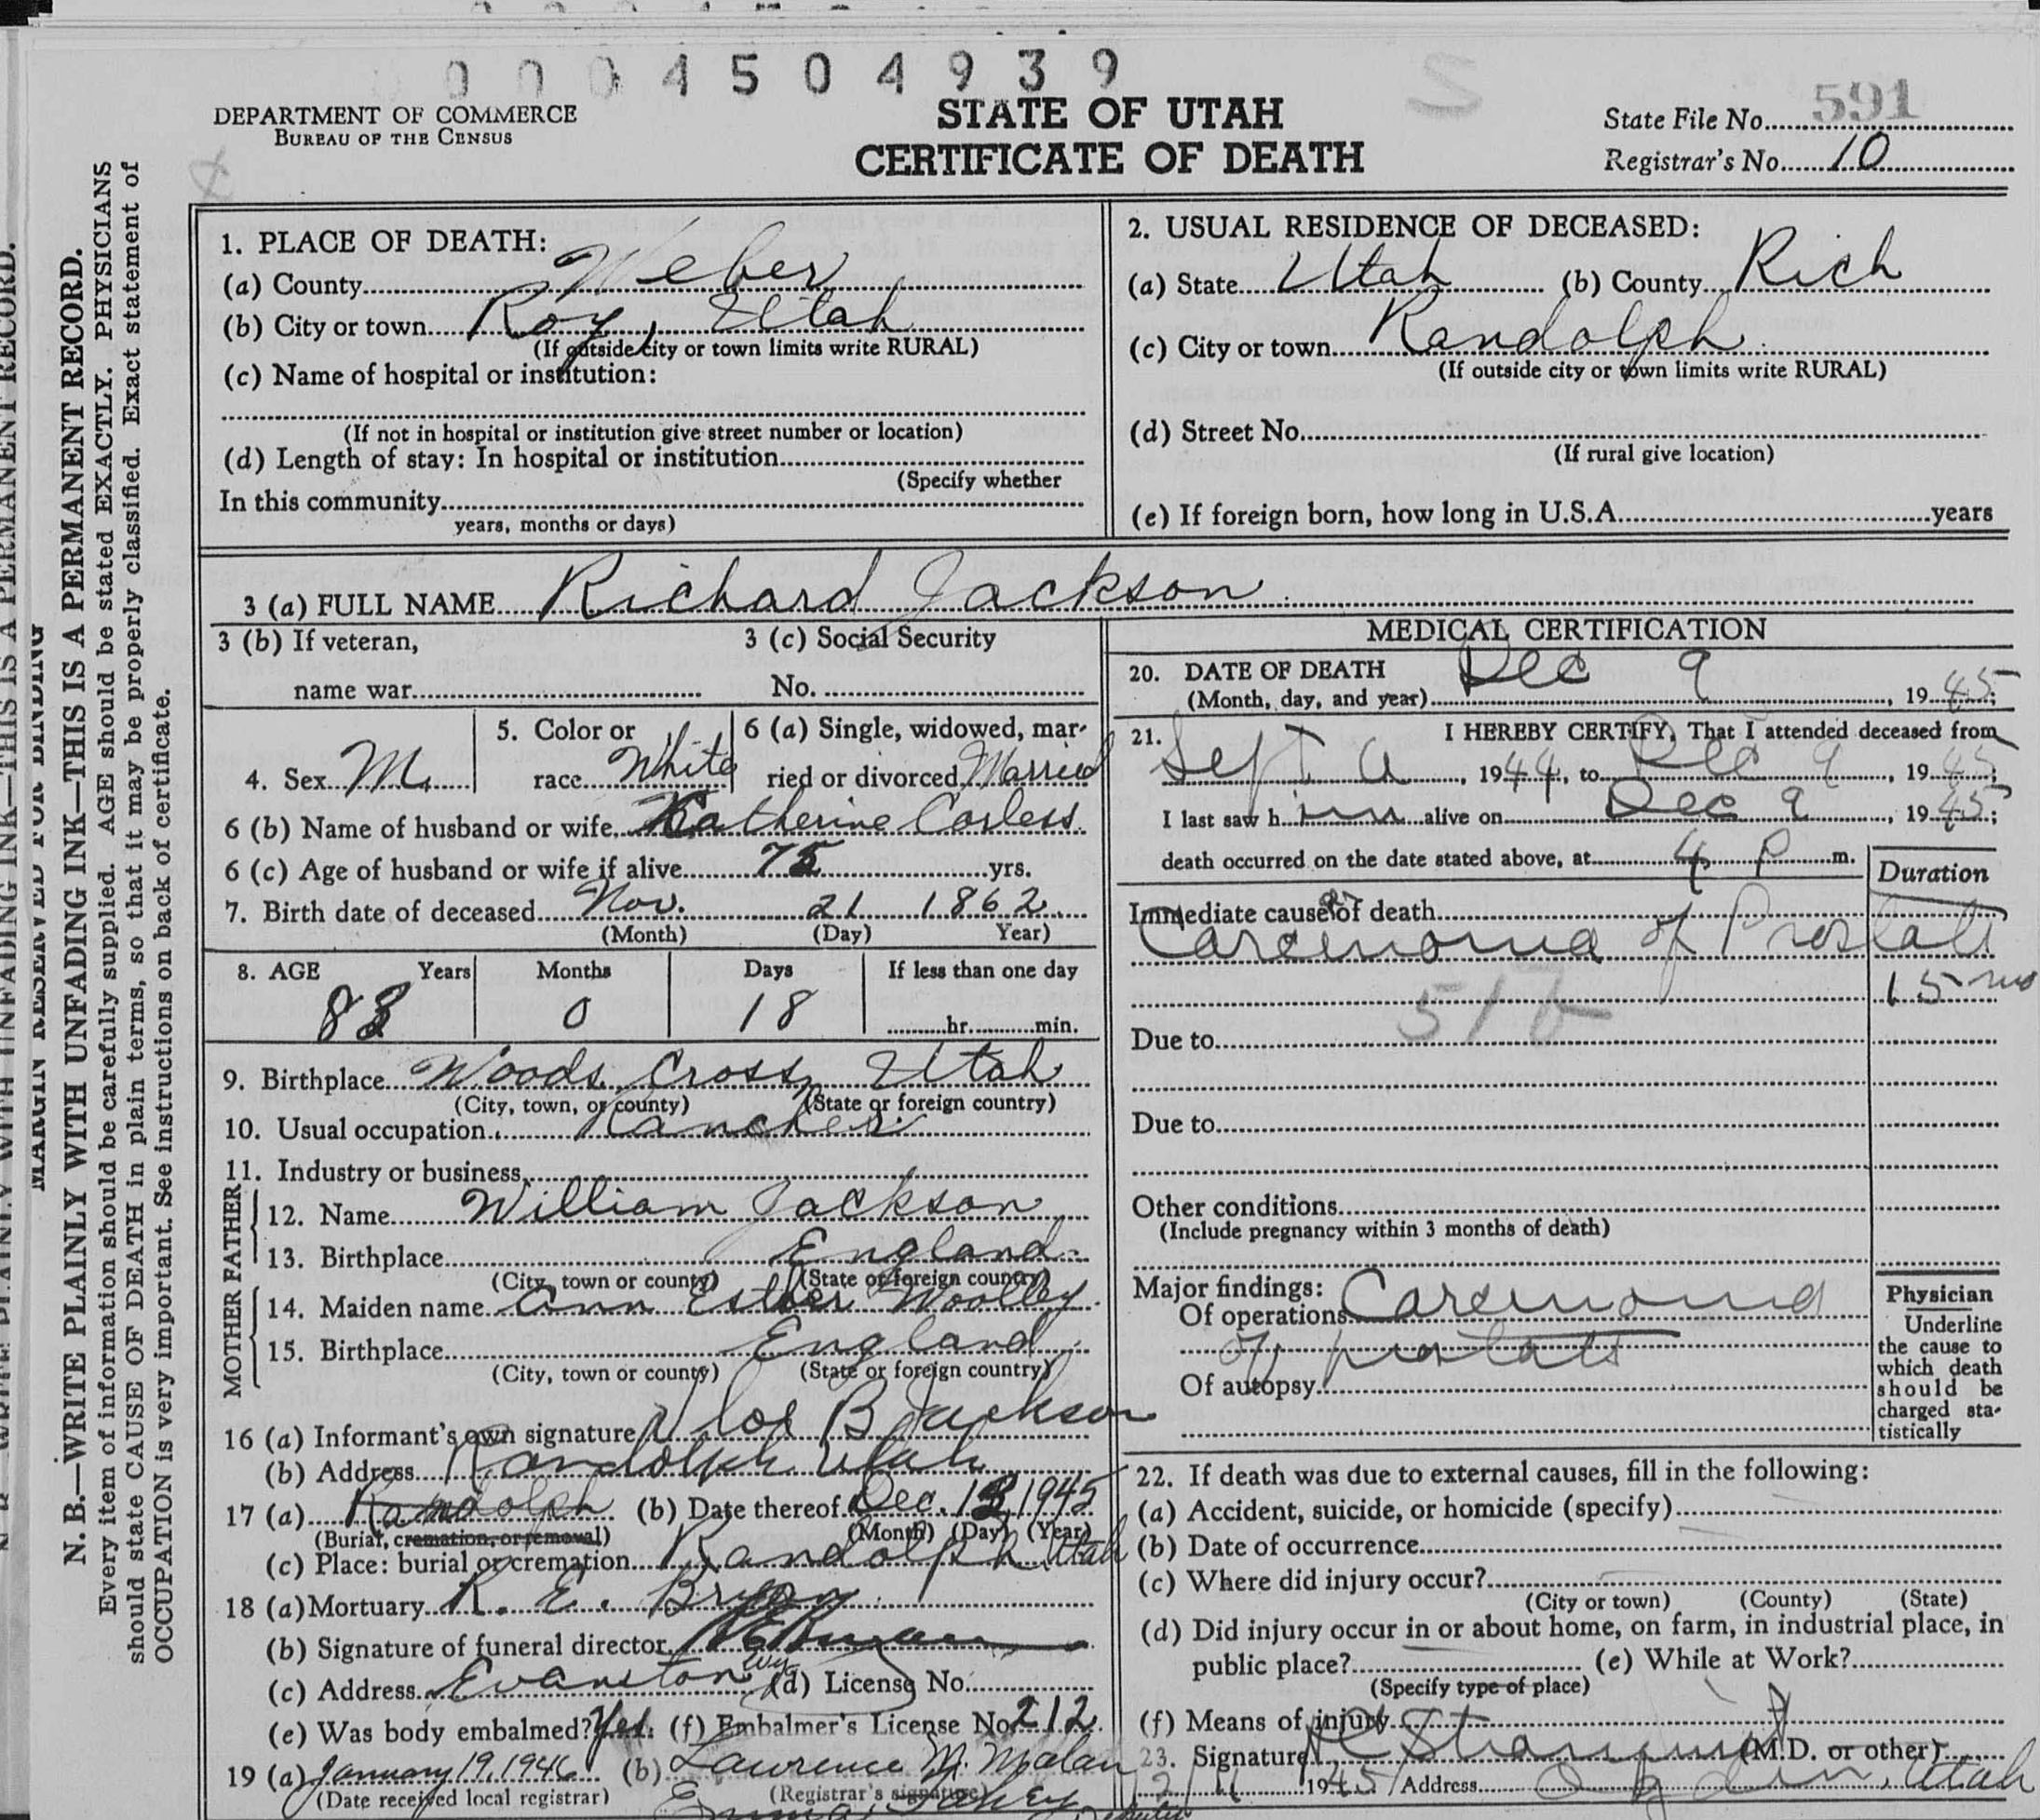 0 0 0 4 5 0 4 9 3 9
DEPARTMENT OF COMMERCE
BUREAU OF THE CENSUS
STATE OF UTAH
CERTIFICATE OF DEATH
State File No. 591
Registrar's No. 10
N. B.—WRITE PLAINLY WITH UNFADING INK—THIS IS A PERMANENT RECORD.
MARGIN RESERVED FOR BINDING
Every item of information should be carefully supplied. AGE should be stated EXACTLY. PHYSICIANS
should state CAUSE OF DEATH in plain terms, so that it may be properly classified. Exact statement of
OCCUPATION is very important. See instructions on back of certificate.
1. PLACE OF DEATH:
(a) County Weber
(b) City or town Roy, Utah
(If outside city or town limits write RURAL)
(c) Name of hospital or institution:
(If not in hospital or institution give street number or location)
(d) Length of stay: In hospital or institution
(Specify whether
In this community
years, months or days)
2. USUAL RESIDENCE OF DECEASED:
(a) State Utah (b) County Rich
(c) City or town Randolph
(If outside city or town limits write RURAL)
(d) Street No.
(If rural give location)
(e) If foreign born, how long in U.S.A. years
3 (a) FULL NAME Richard Jackson
3 (b) If veteran,
name war
3 (c) Social Security
No.
4. Sex M.
5. Color or
race White
6 (a) Single, widowed, mar-
ried or divorced Married
6 (b) Name of husband or wife Katherine Corless
6 (c) Age of husband or wife if alive 75 yrs.
7. Birth date of deceased Nov. 21 1862
(Month) (Day) Year)
8. AGE Years Months Days If less than one day
83 0 18 hr. min.
9. Birthplace Woods Cross, Utah
(City, town, or county) (State or foreign country)
10. Usual occupation Rancher
11. Industry or business
FATHER
12. Name William Jackson
13. Birthplace England
(City, town or county) (State or foreign country)
MOTHER
14. Maiden name Ann Esther Woolley
15. Birthplace England
(City, town or county) (State or foreign country)
16 (a) Informant's own signature B Jackson
(b) Address Randolph Utah
17 (a) Randolph (b) Date thereof Dec. 13 1945
(Burial, cremation, or removal) (Month) (Day) (Year)
(c) Place: burial or cremation Randolph Utah
18 (a) Mortuary R. E.
(b) Signature of funeral director
(c) Address Evanston Wyo (d) License No.
(e) Was body embalmed? Yes. (f) Embalmer's License No. 212
19 (a) January 19, 1946 (b) Lawrence M. Malan
(Date received local registrar) (Registrar's signature)
MEDICAL CERTIFICATION
20. DATE OF DEATH Dec 9
(Month, day, and year) , 1945;
21. I HEREBY CERTIFY, That I attended deceased from
Sept , 1944, to Dec 9, 1945;
I last saw him alive on Dec 9, 1945;
death occurred on the date stated above, at 4 P m.
Duration
Immediate cause of death
Carcinoma of Prostate
15 mo
51b
Due to
Due to
Other conditions
(Include pregnancy within 3 months of death)
Major findings:
Of operations Carcinoma
of prostate
Of autopsy
Physician
Underline
the cause to
which death
should be
charged sta-
tistically
22. If death was due to external causes, fill in the following:
(a) Accident, suicide, or homicide (specify)
(b) Date of occurrence
(c) Where did injury occur?
(City or town) (County) (State)
(d) Did injury occur in or about home, on farm, in industrial place, in
public place? (e) While at Work?
(Specify type of place)
(f) Means of injury
23. Signature (M.D. or other)
1945 Address Ogden, Utah